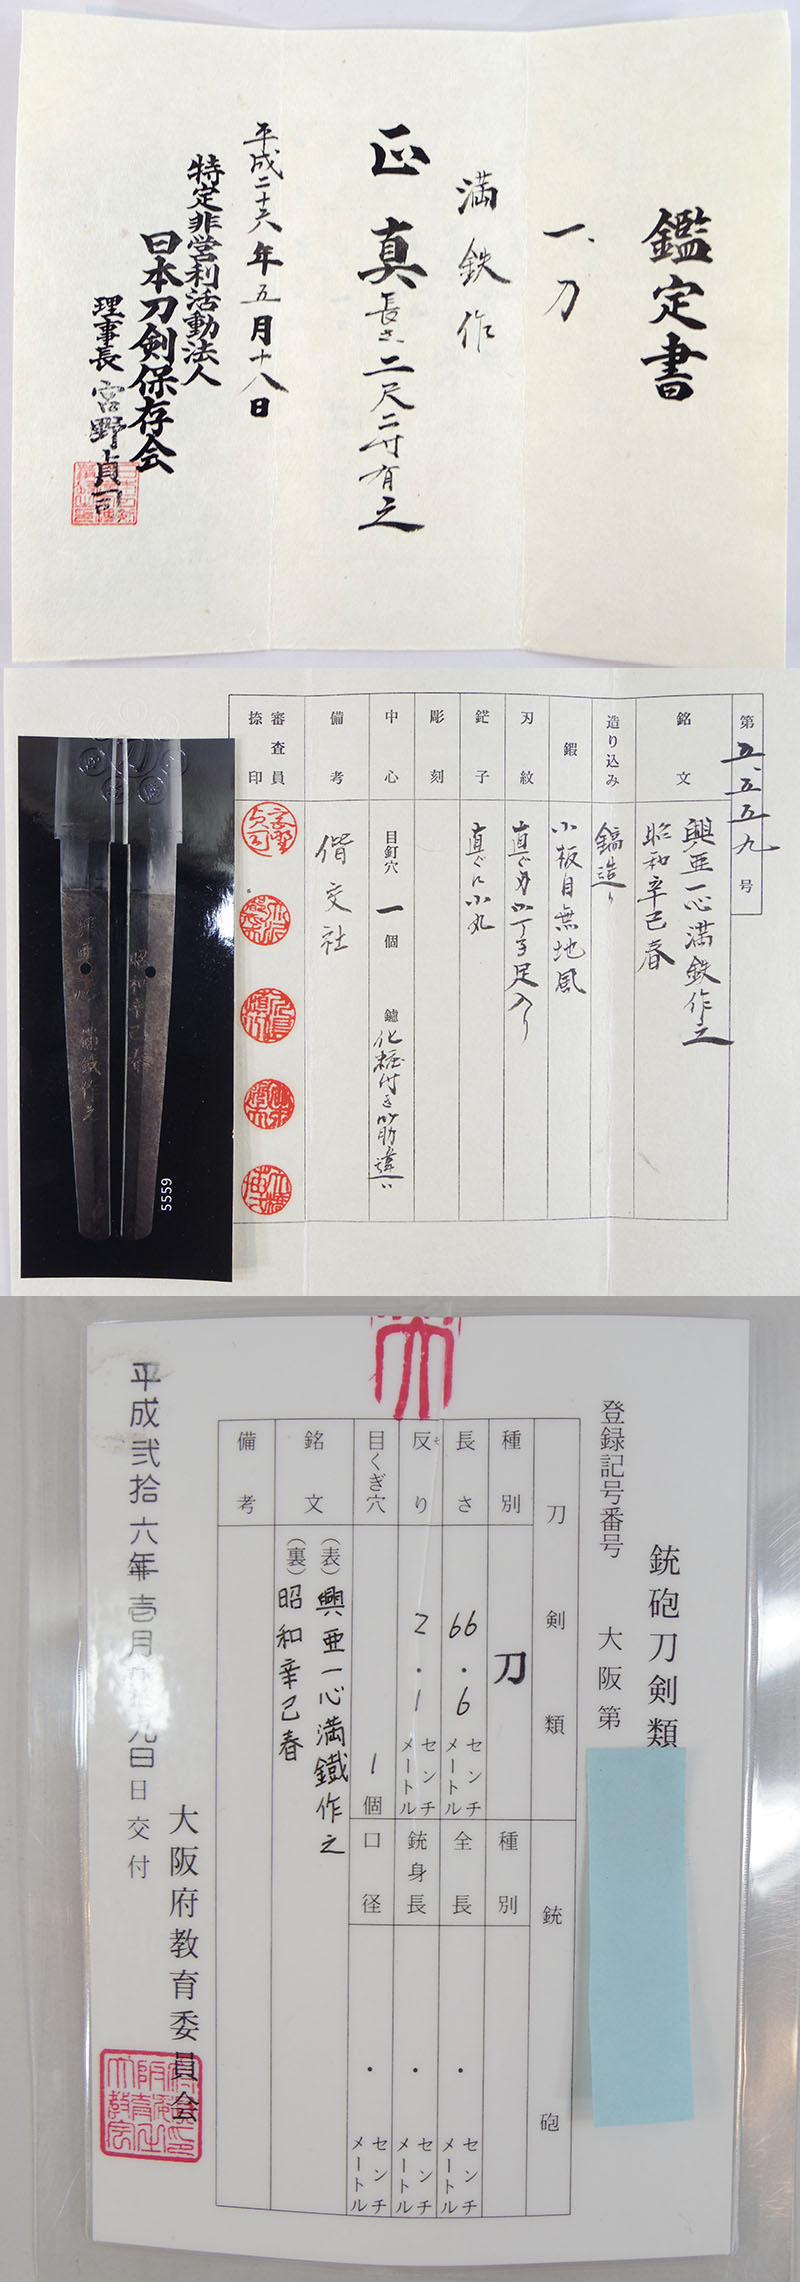 鑑定書
一、刀
満鉄作
正真 長さ、二尺二寸有之
平成二十六年五月十八日
特定非営利活動法人
日本刀剣保存会
理事長 宮野貞司
第五、五五九号
銘文
興亜一心満鉄作之
昭和辛己春
造り込み
鎬造り
鍜
小板目無地風
刃紋
直ぐ刃小丁子足入り
鋩子
直ぐに小丸
彫刻
中心
目釘穴 一個 鑢 化粧付き筋違い
備考
偕交社
審査員
捺印
昭和辛己春
5559
銃砲刀剣類
登録記号番号 大阪第
刀剣類
銃砲
種別 刀
長さ 66.6 センチメートル
反り 2.1 センチメートル
目くぎ穴 1個
種別
全長 ・ センチメートル
銃身長 ・ センチメートル
口径 ・ センチメートル
銘文
(表)興亜一心満鐵作之
(裏)昭和辛己春
備考
平成弐拾六年壱月 九日日交付
大阪府教育委員会